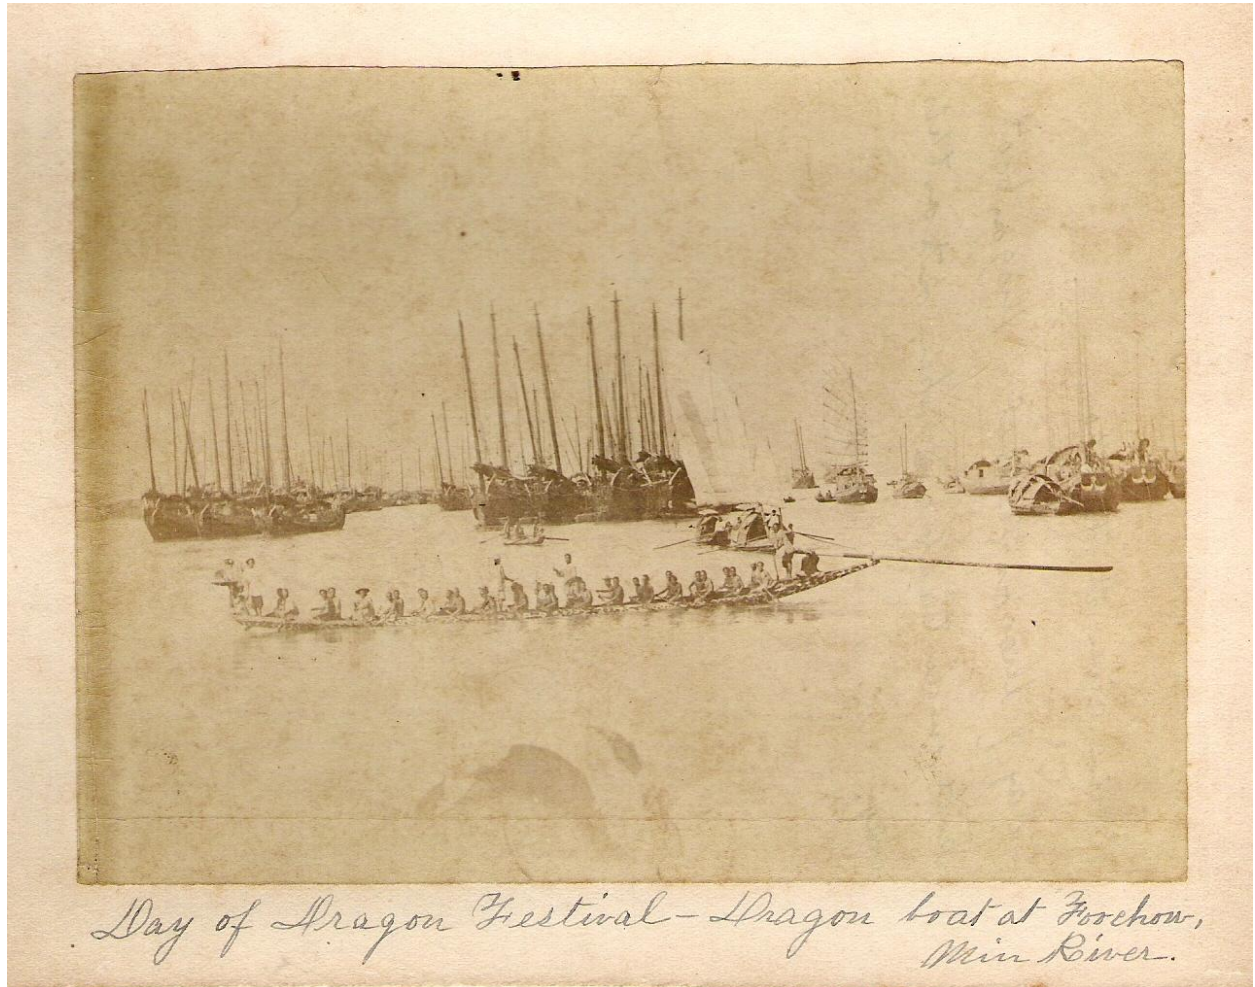 Day of Dragon Festival – Dragon boat at Foochow,
Min River.